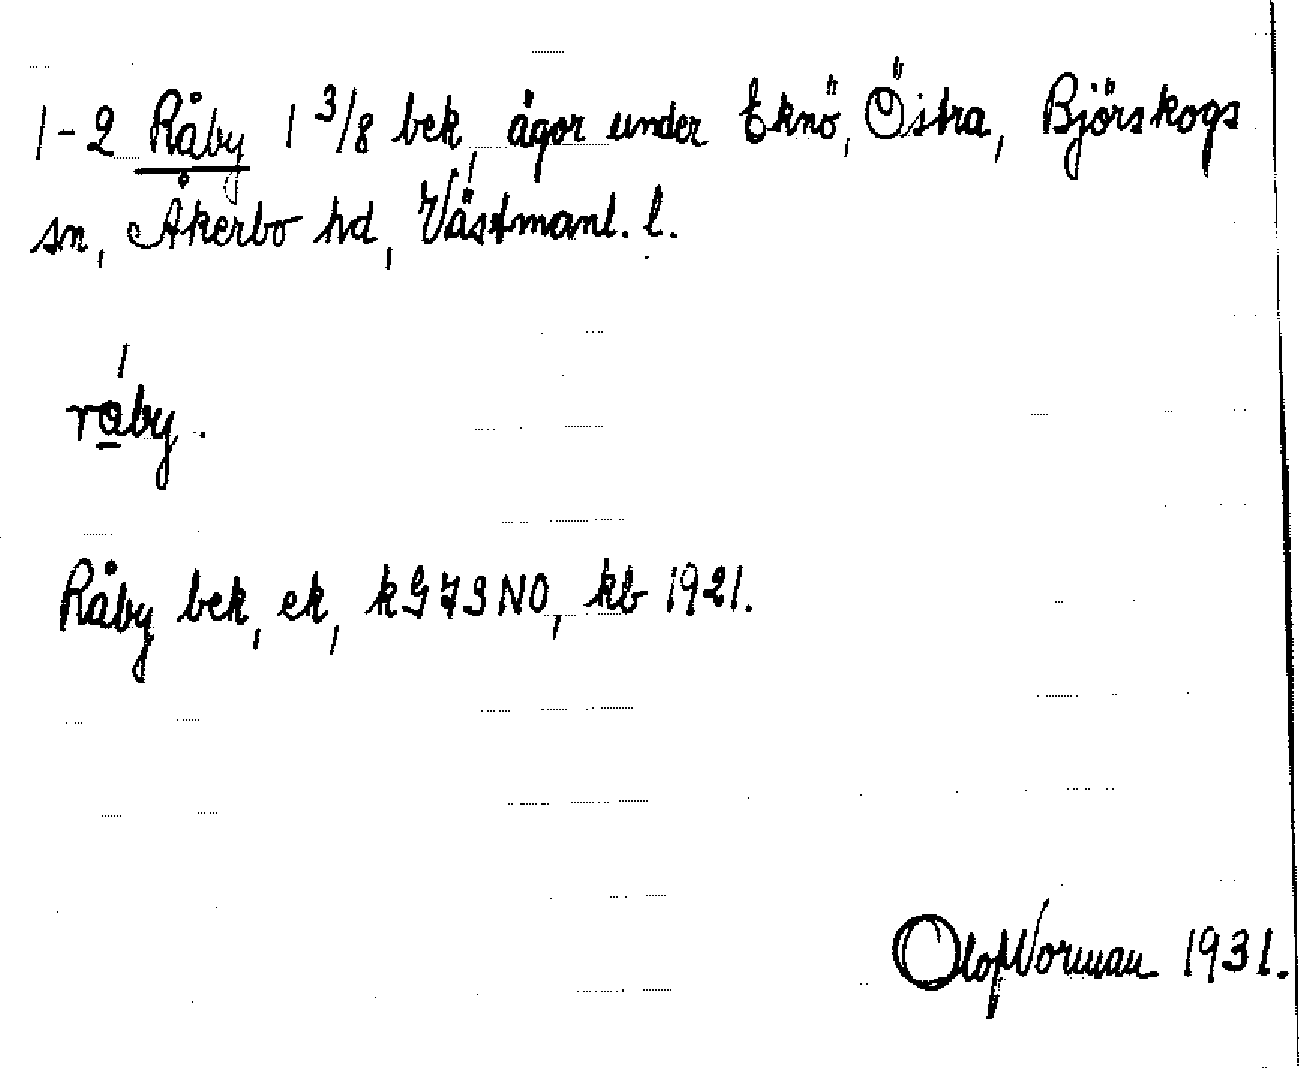 1-2 Råby 1 3/8 bek, ägor under Eknö, Östra, Björskogs
sn, Åkerbo hd, Västmanl. l.
ráby.
Råby bek, ek, k G73 NO, kb 1921.
Olof Norman 1931.